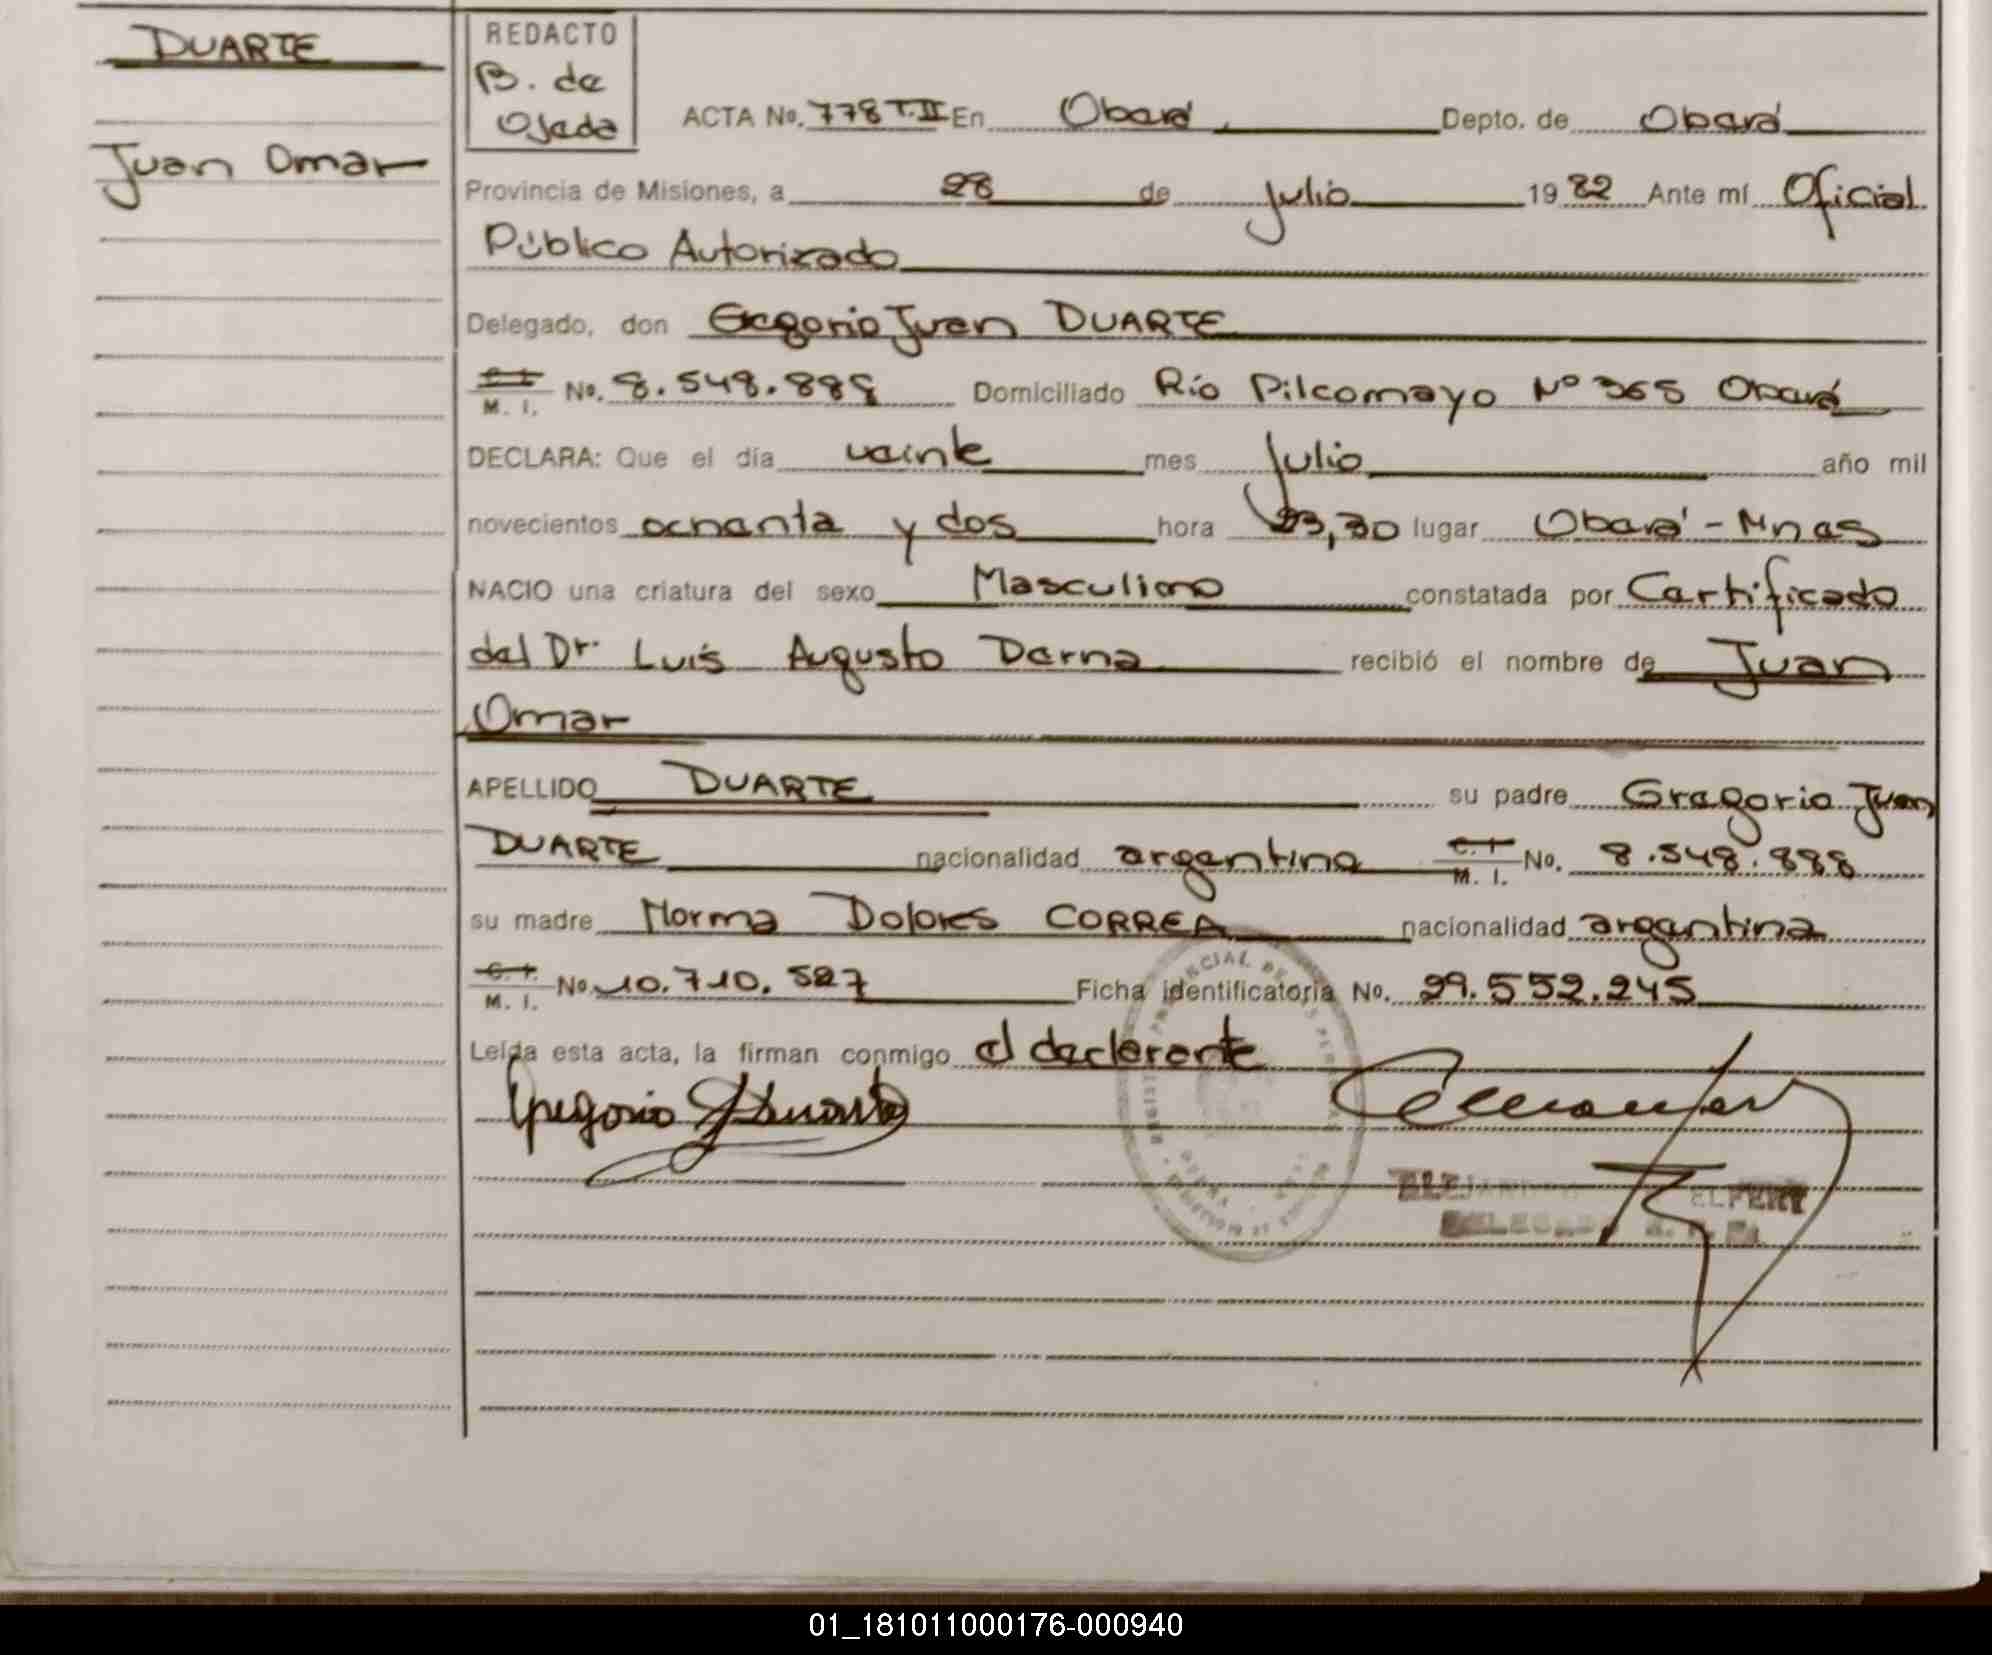 DUARTE
Juan Omar
REDACTO
B. de
Ojeda
ACTA No. 778 T.II En Oberá Depto. de Oberá
Provincia de Misiones, a 28 de Julio 1982 Ante mí Oficial
Público Autorizado
Delegado, don Gregorio Juan DUARTE
C. I. M. I. No. 8.548.888 Domiciliado Río Pilcomayo Nº 365 Oberá
DECLARA: Que el día veinte mes Julio año mil
novecientos ochenta y dos hora 23,30 lugar Oberá - Mnes
NACIO una criatura del sexo Masculino constatada por Certificado
del Dr. Luis Augusto Derna recibió el nombre de Juan
Omar
APELLIDO DUARTE su padre Gregorio Juan
DUARTE nacionalidad argentina C. I. M. I. No. 8.548.888
su madre Norma Dolores CORREA nacionalidad argentina
C. I. M. I. No. 10.710.527 Ficha identificatoria No. 29.552.245
Leída esta acta, la firman conmigo el declarante
Gregorio J Duarte
01_181011000176-000940